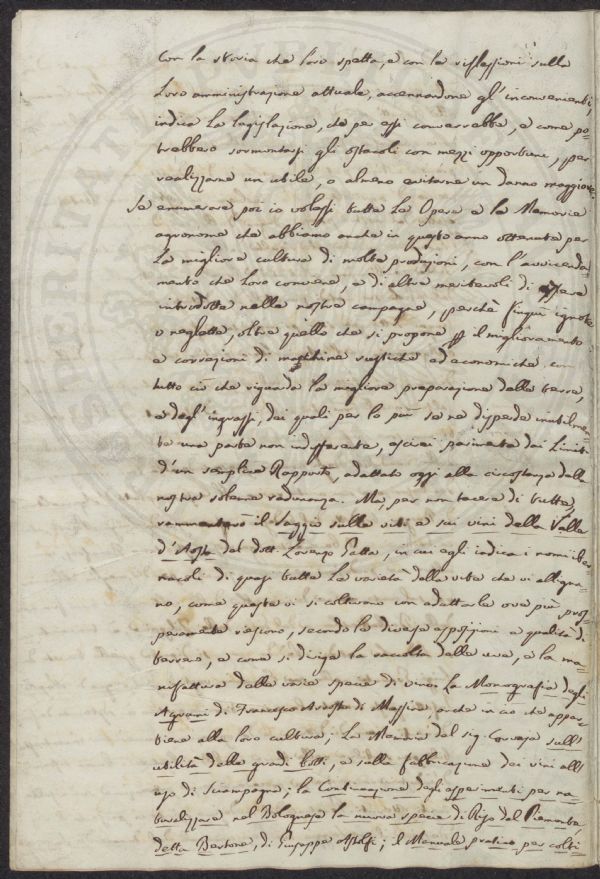 con la storia che loro spetta, e con le riflessioni sulla
loro amministrazione attuale, accennandone gl'inconvenienti,
indica la legislazione, che per essi converrebbe, e come po-
trebbero sormontarsi gli ostacoli con mezzi opportuni, per
realizzarne un utile, o almeno evitarne un danno maggiore.
Se enumerare poi io volessi tutte le Opere e le Memorie
agronome che abbiamo anche in quest'anno ottenute per
la migliore cultura di molte produzioni, con l'avvicenda-
mento che loro conviene, e di altre meritevoli di essere
introdotte nelle nostre campagne, perchè finqui ignote
o neglette, oltre quello che si propone pel il miglioramento
e correzioni di macchine rustiche ed economiche con
tutto ciò che riguarda la migliore preparazione delle terre,
e degl'ingrassi, dei quali per lo più se ne disperde inutilmen-
te una parte non indifferente, escirei parimente dai limiti
d'un semplice Rapporto, adattato oggi alla circostanza della
nostra solenne radunanza. Ma, per non tacere di tutte,
rammenterò il Saggio sulle viti e sui vini della Valle
d'Aosta del dott. Lorenzo Gatta, in cui egli indica i nomi ver-
nacoli di quasi tutte le varietà delle vite che vi alligna-
no, come queste vi si coltivano con adattarle ove più pros-
peramente riescono, secondo le diverse esposizioni e qualità di
terreno, e come si diriga la raccolta delle uve, e la ma-
nifattura delle varie specie di vino: La Monografia degli
Agrumi di Francesco Arrosto di Messina, anche in ciò che appar-
tiene alla loro cultura; La Memoria del sig. sull'
utilità delle grandi botti, e sulla fabbricazione dei vini all'
uso di Sciampagna; la Continuazione degli esperimenti per na-
turalizzare nel Bolognese la nuova specie di Riso del Piemonte
detta Bertone, di Giuseppe Astolfi; il Manuale pratico per colti-